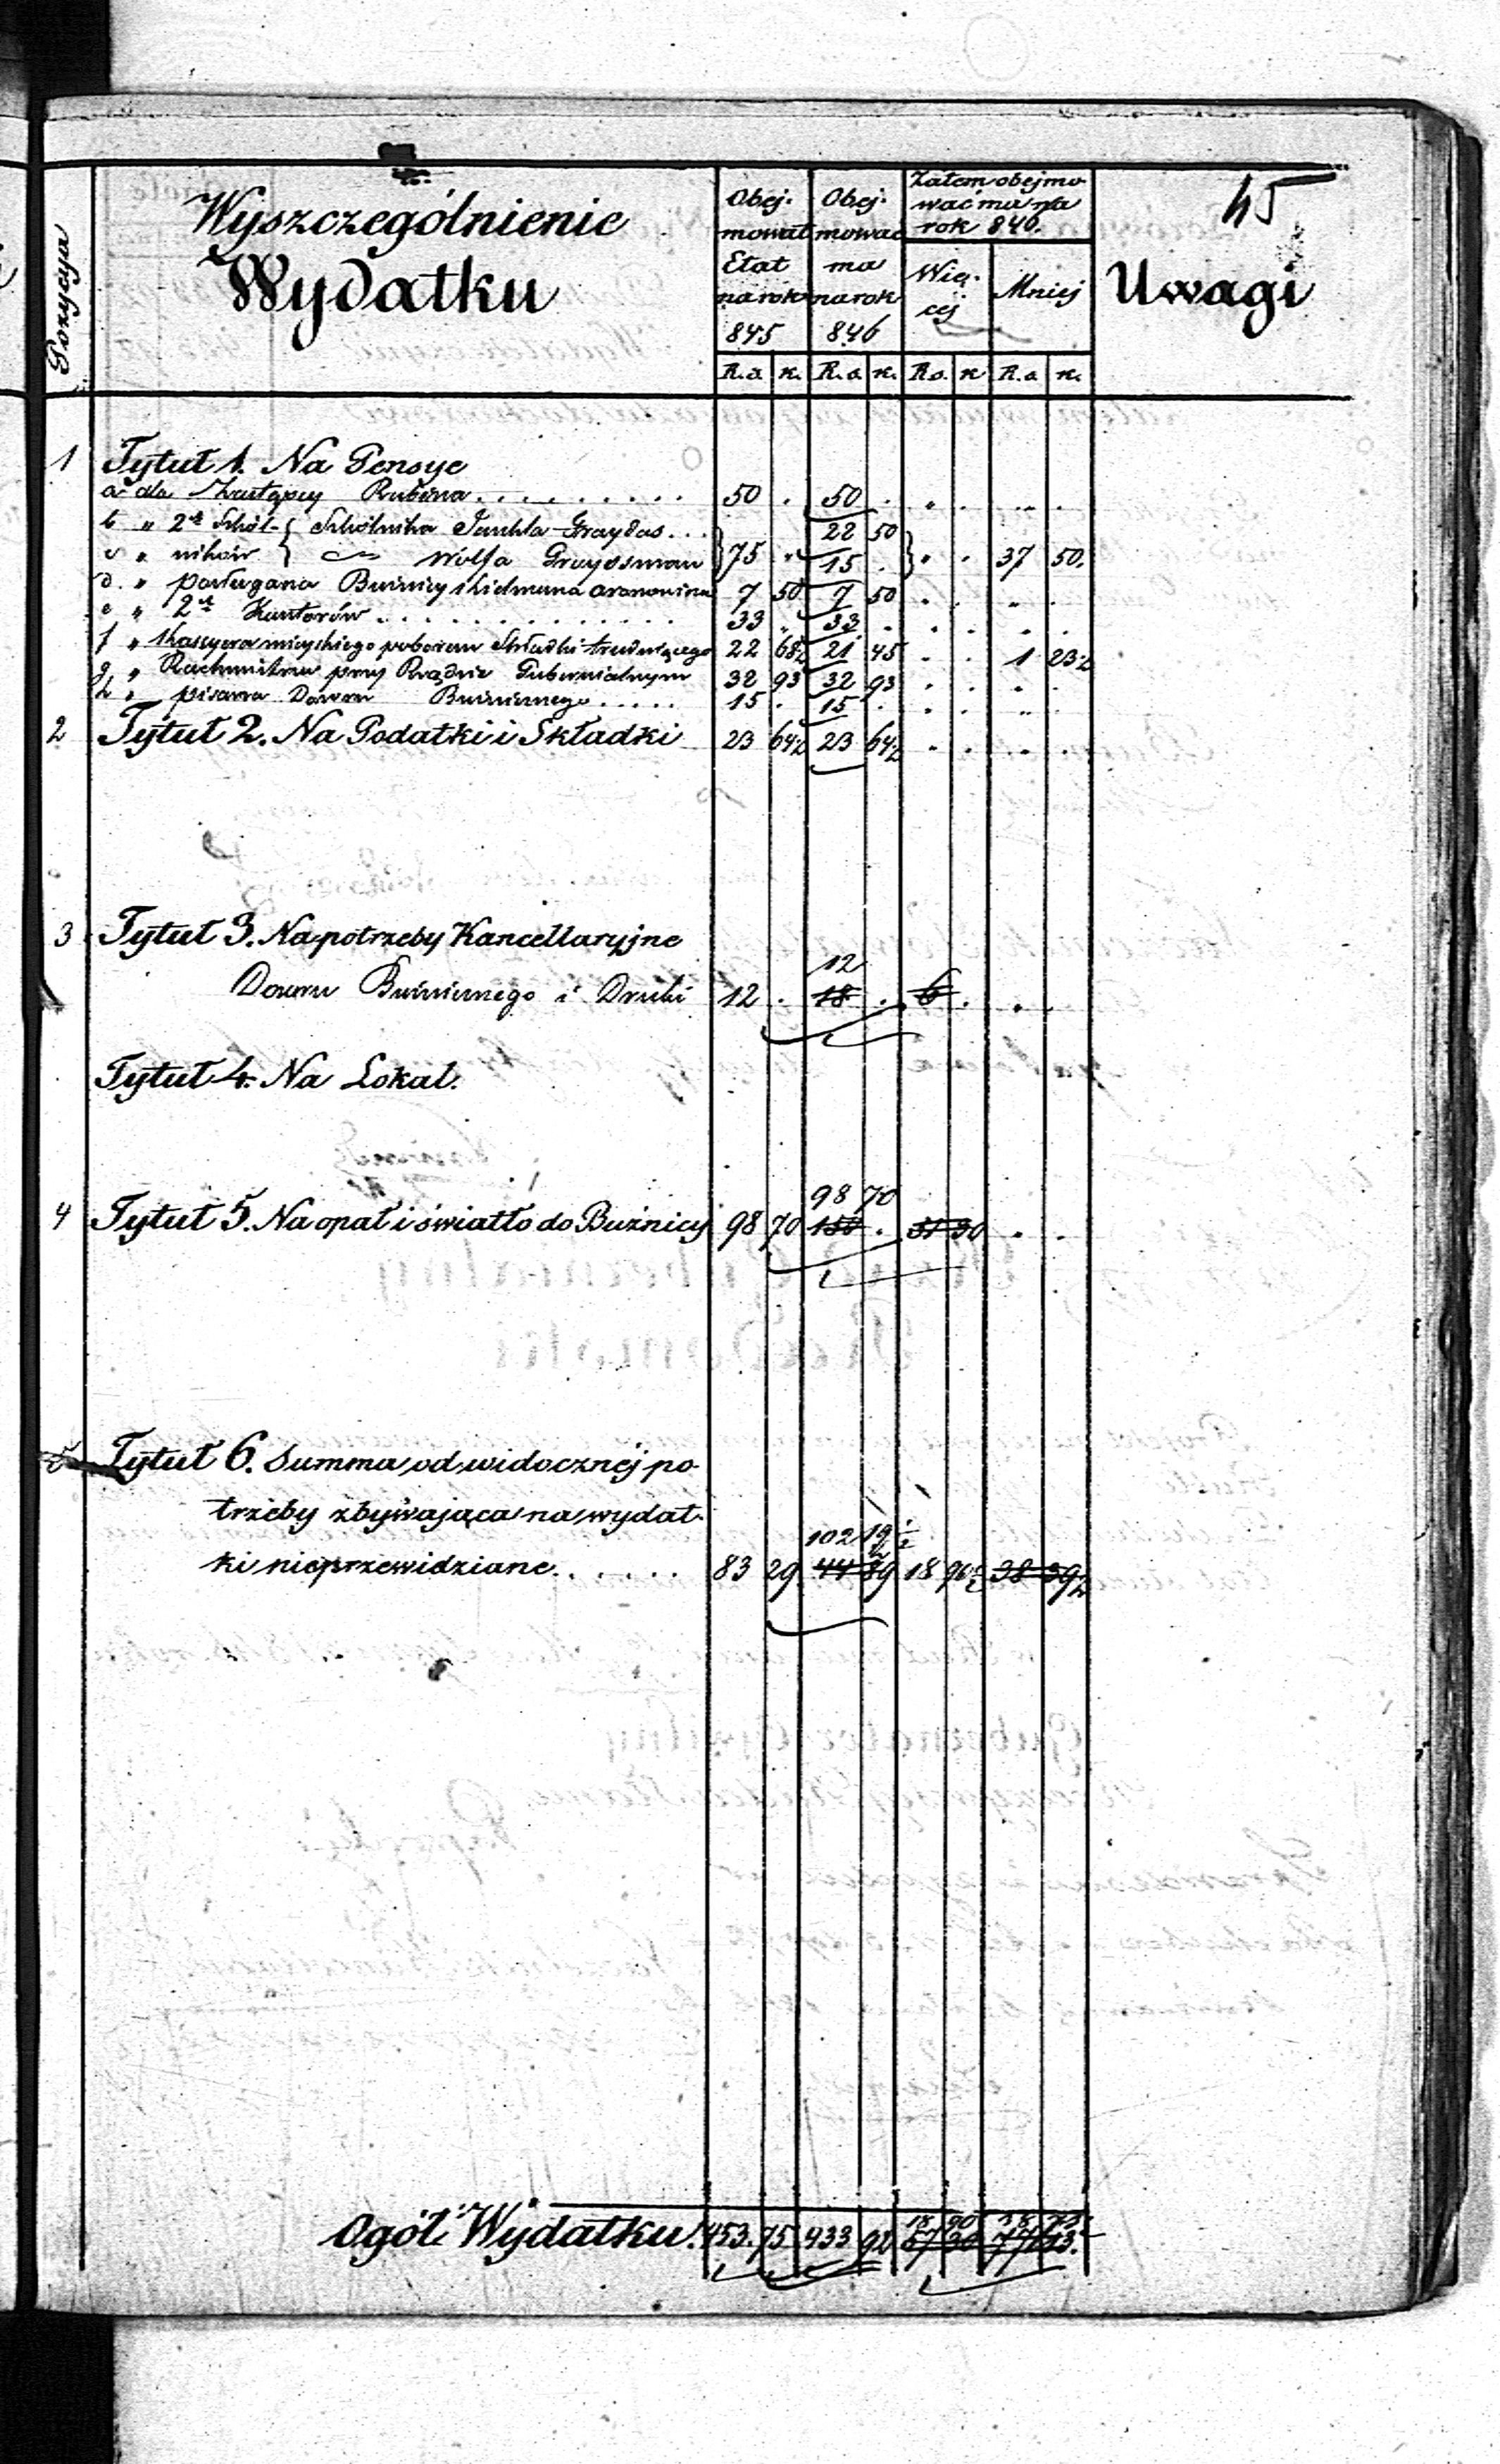 45
Pozycya
Wyszczególnienie
Wydatku
Obej-
mował
Etat
na rok
845
Obej-
mować
ma
na rok
846
Zatem obejmo
wać ma na
rok 846.
Wię-
cej
Mniej
Uwagi
R.s. k. R.s. k. R.s. k R.s. k.
1 Tytuł 1. Na Pensye
a dla Zastępcy Rabina......... 50 . 50 . . . . .
b „ 2ch Szkol- { Szkólnika ... 22 50
c „ ników } Wolfa 75 „ 15 . „ . 37 50.
d. „ posługacza Buźnicy 7 50 7 50 . . „ .
e „ 2ch Kantorów............. 33 „ 33 . . . . .
f „ Kassyera mieyskiego poborem Składki trudniącego 22 68½ 21 45 . . 1 23½
g „ Rachmistrza przy Rządzie Gubernialnym 32 93 32 93 . . . .
h „ pisarza Dozoru Buźniczego..... 15 . 15 . . . „ .
2 Tytuł 2. Na Podatki i Składki 23 64½ 23 64½ . . . .
3 Tytuł 3. Na potrzeby Kancellaryjne
12
Dozoru Buźniczego i Druki 12 . 18 . 6 . . .
Tytuł 4. Na Lokal.
98 70
4 Tytuł 5. Na opał i światło do Buźnicy 98 70 150 . 51 30 . .
Tytuł 6. Summa od widocznéj po
trzeby zbywająca na wydat-
102 19½
ki nieprzewidziane....... 83 29 44 89 18 90½ 38 39½
18 90
Ogół Wydatku. 453. 75 433 92 57 30 77 13.